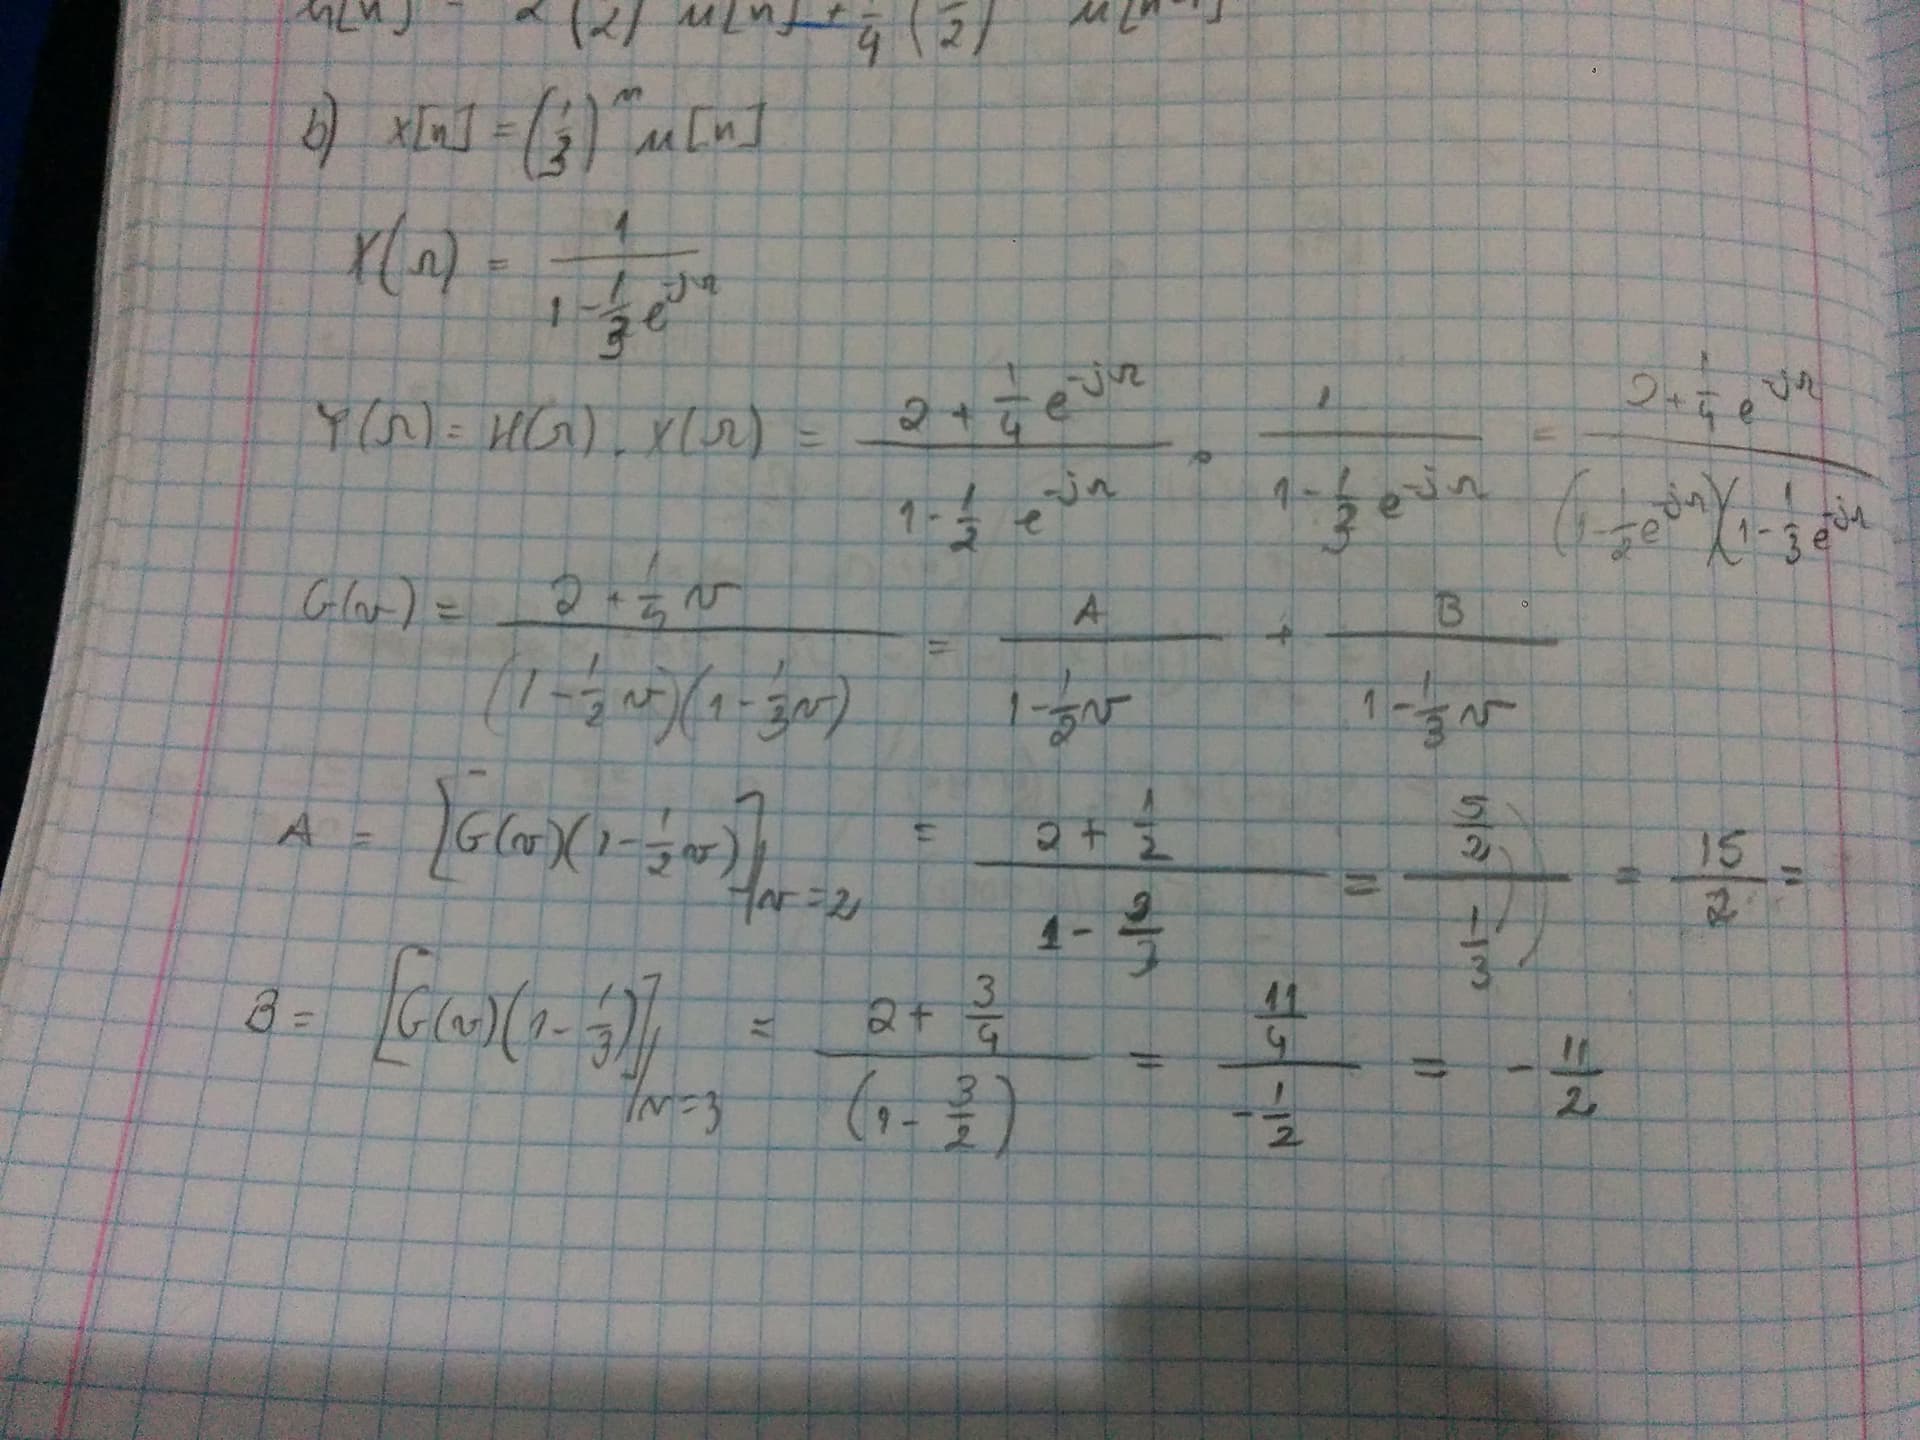 h[n] = 2 (1/2) u[n] + 1/4 (1/2) u[n-1]
b) x[n] = (1/3)^n u[n]
X(Ω) = 1 / (1 - 1/3 e^-jΩ)
Y(Ω) = H(Ω) . X(Ω) = (2 + 1/4 e^-jΩ) / (1 - 1/2 e^-jΩ) . 1 / (1 - 1/3 e^-jΩ) = (2 + 1/4 e^-jΩ) / (1 - 1/2 e^-jΩ)(1 - 1/3 e^-jΩ)
G(v) = (2 + 1/4 v) / (1 - 1/2 v)(1 - 1/3 v) = A / (1 - 1/2 v) + B / (1 - 1/3 v)
A = [G(v)(1 - 1/2 v)]|v=2 = (2 + 1/2) / (1 - 2/3) = (5/2) / (1/3) = 15/2 =
B = [G(v)(1 - 1/3)]|v=3 = (2 + 3/4) / (1 - 3/2) = (11/4) / (-1/2) = - 11/2